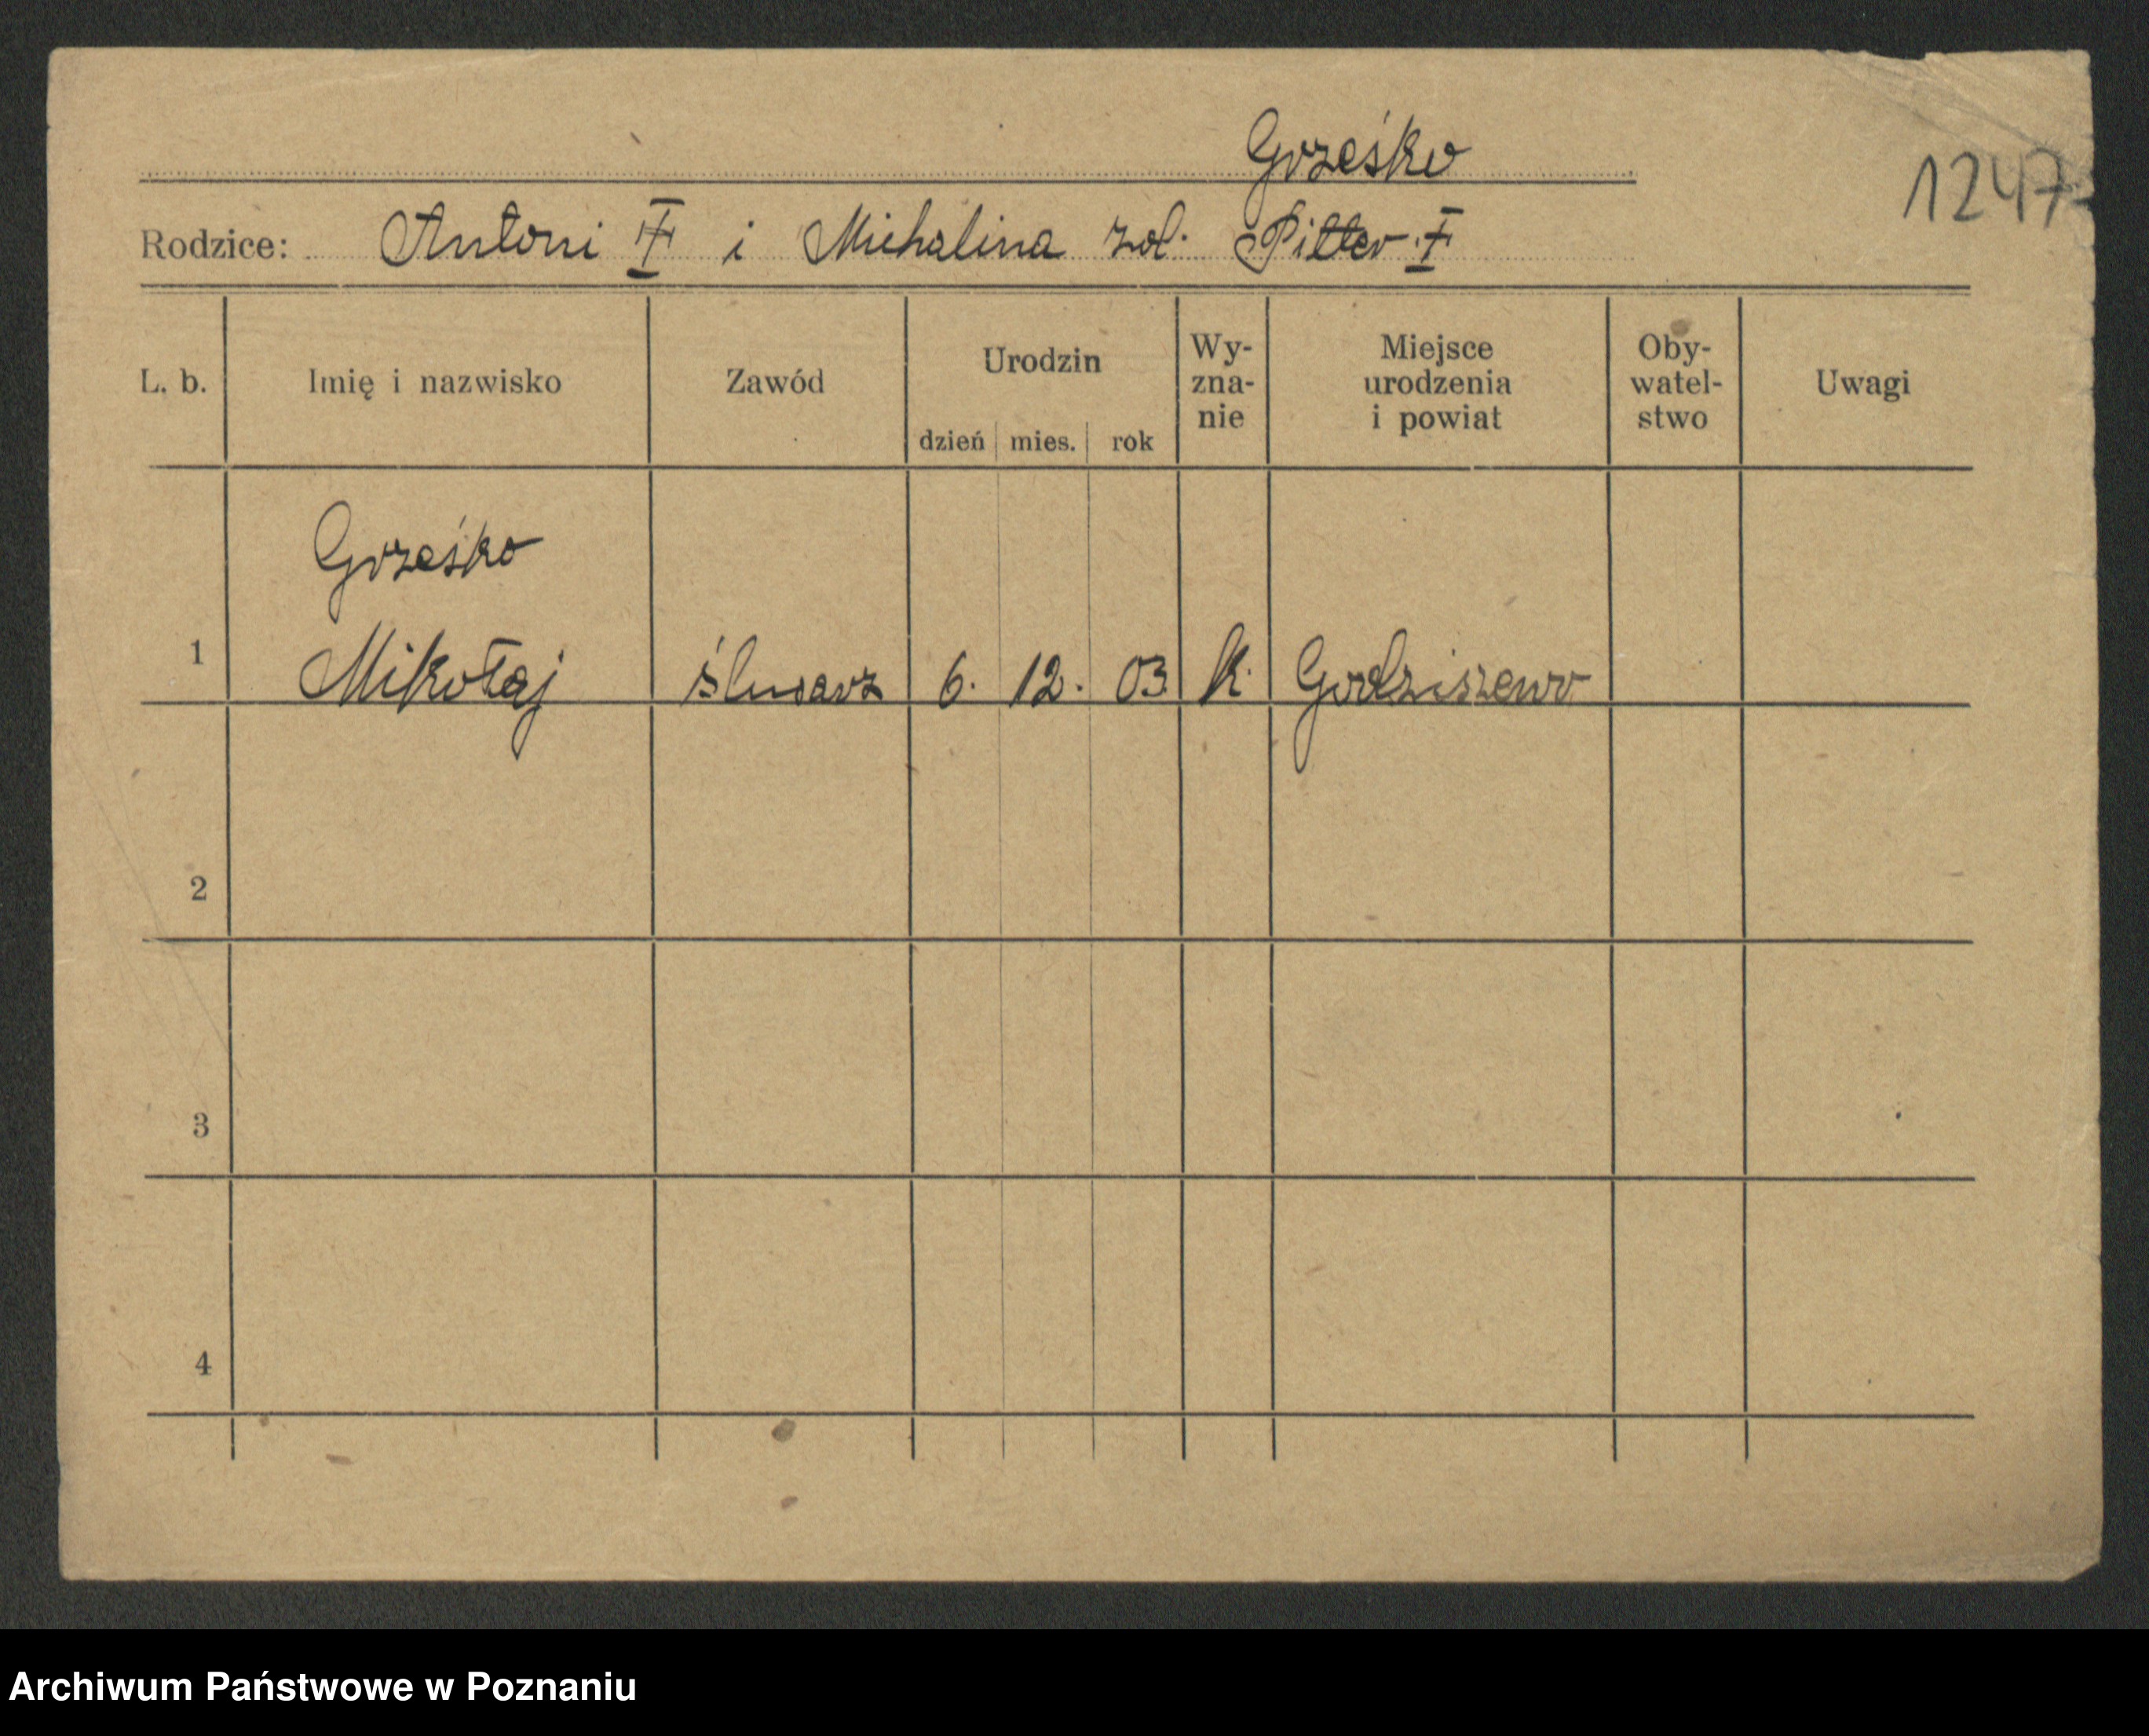 Grześko
1247
Rodzice: Antoni i Michalina zd. Pitter
L. b. Imię i nazwisko Zawód Urodzin dzień mies. rok Wy-zna-nie Miejsce urodzenia i powiat Oby-watel-stwo Uwagi
Grześko
1 Mikołaj ślusarz 6. 12. 03 k. Godziszewo
2
3
4
Archiwum Państwowe w Poznaniu